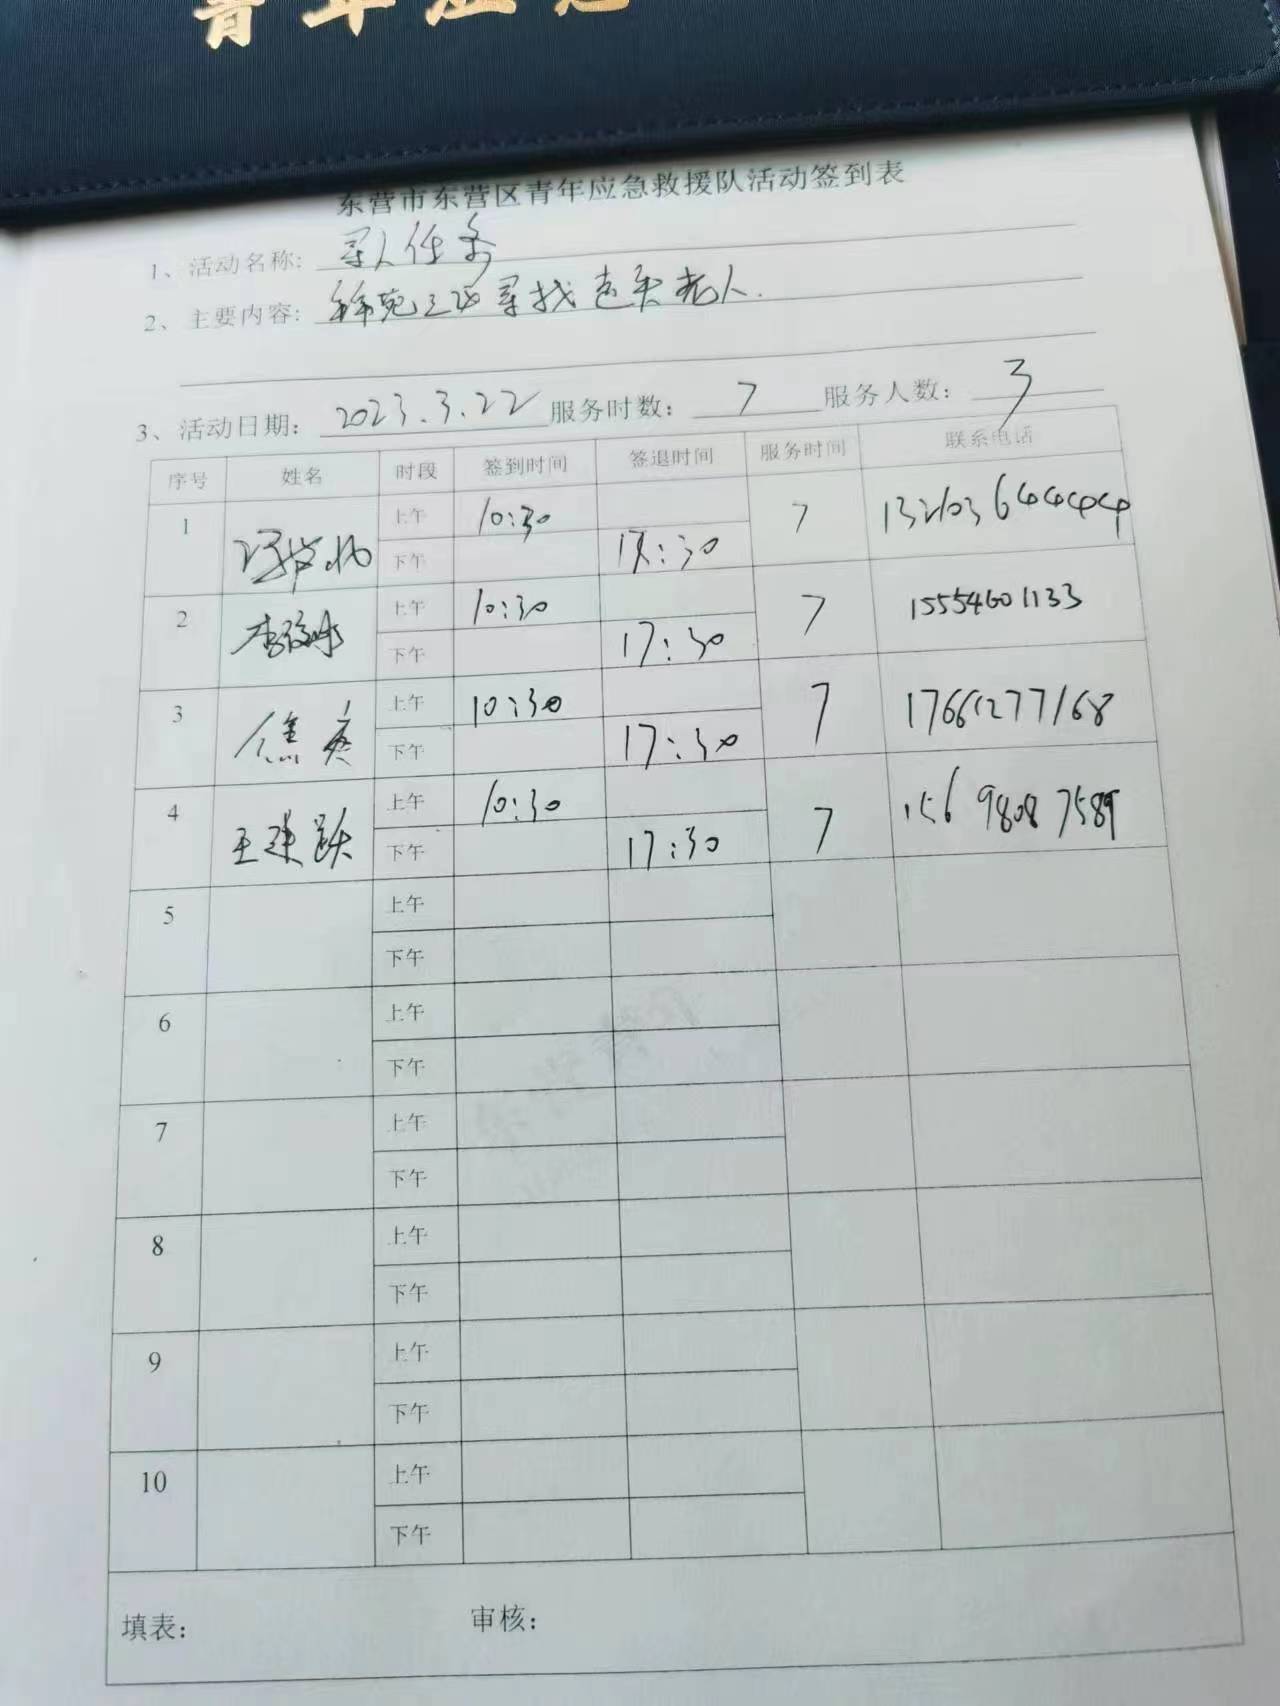 青年应急
东营市东营区青年应急救援队活动签到表
1、活动名称: 寻人任务
2、主要内容: 寻找走失老人.
3、活动日期: 2023.3.22 服务时数: 7 服务人数: 3
序号 姓名 时段 签到时间 签退时间 服务时间 联系电话
1 上午 10:30 7
下午 17:30
2 李 上午 10:30 7 15554601133
下午 17:30
3 焦爽 上午 10:30 7 17661277168
下午 17:30
4 王建跃 上午 10:30 7 156 9808 7589
下午 17:30
5 上午
下午
6 上午
下午
7 上午
下午
8 上午
下午
9 上午
下午
10 上午
下午
填表: 审核: